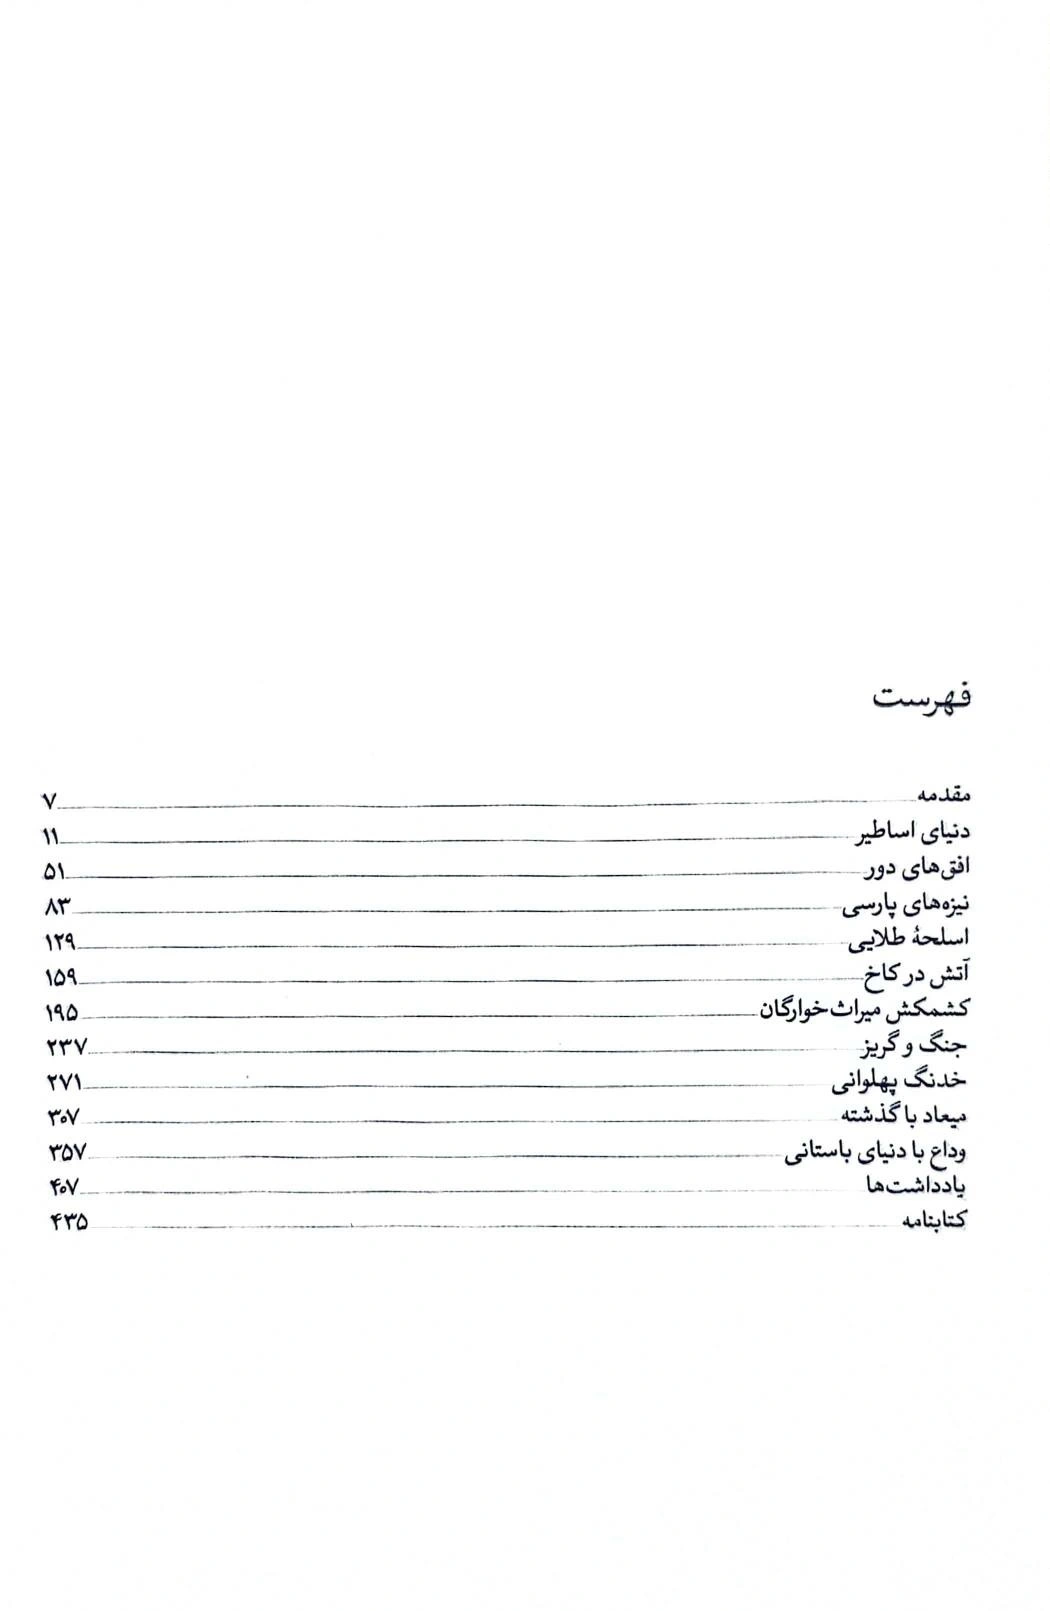 فهرست
مقدمه ۷
دنیای اساطیر ۱۱
افق‌های دور ۵۱
نیزه‌های پارسی ۸۳
اسلحهٔ طلایی ۱۲۹
آتش در کاخ ۱۵۹
کشمکش میراث‌خوارگان ۱۹۵
جنگ و گریز ۲۳۷
خدنگ پهلوانی ۲۷۱
میعاد با گذشته ۳۰۷
وداع با دنیای باستانی ۳۵۷
یادداشت‌ها ۴۰۷
کتابنامه ۴۳۵